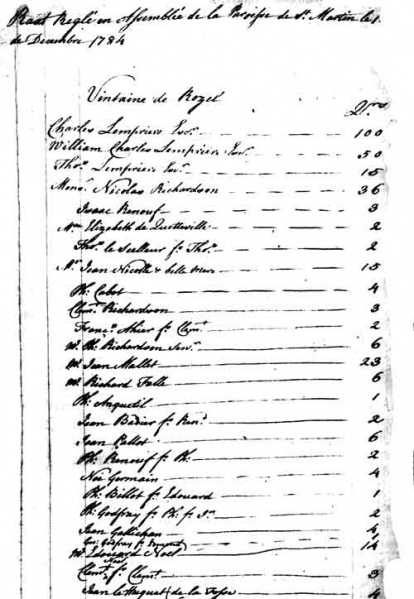 Raat Reglé en Assemblée de la Paroisse de St. Martin le 1.
de Decembre 1784
Vintaine de Rozel
Qrs
Charles Lempriere Esqr. 100
William Charles Lempriere Esqr. 50
Thos. Lempriere Esqr. 15
Monsr. Nicolas Richardson 36
Isaac Renouf 3
Mrs Elizabeth de Quetteville 2
Thos. le Seelleur fs. Thos. 2
Mr. Jean Nicolle & belle mere 15
Ph: Cabot 4
Clemt. Richardson 3
Franc. Ahier fs. Clemt. 2
Mr. Ph: Richardson Senr. 6
Mr. Jean Mallet 23
Mr. Richard Falle 6
Ph: Anquetil 1
Jean Badier fs. Ren. 2
Jean Pallot 6
Ph: Renouf fs. Ph: 2
Noé Germain 4
Ph: Billot fs. Edouard 1
Ph: Godfray fs. Ph: fs. Jn. 2
Jean Gallichan 4
Godfray
Mr. Edouard Noel 14
Noel
Clemt. fs. Clemt. 3
Jean le Huquet de la Fosse 4